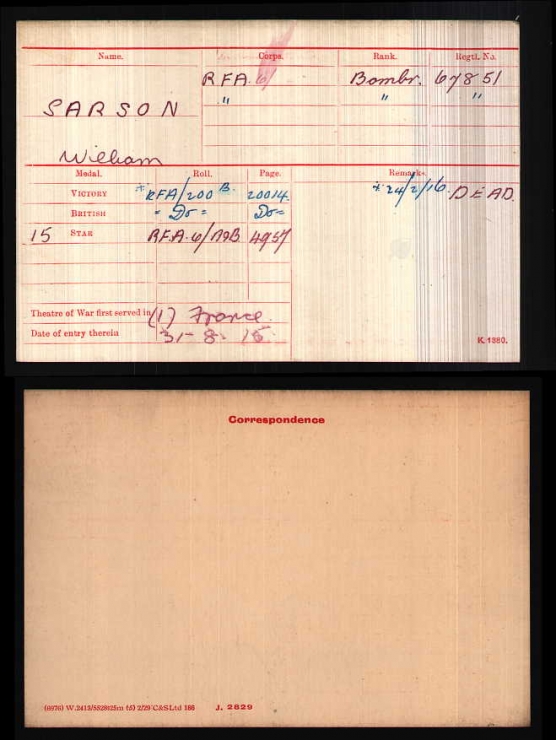 Name. Corps. Rank. Regtl. No.
R F A. Bombr. 67851
" " "
SARSON
William
Medal. Roll. Page. Remarks.
VICTORY * RFA/200 B. 20014. * 24/2/16. DEAD.
BRITISH - Do - Do -
15 STAR R.F.A. 6/ 4957
Theatre of War first served in (1) France.
Date of entry therein 31-8-15
K. 1380.
Correspondence
J. 2829